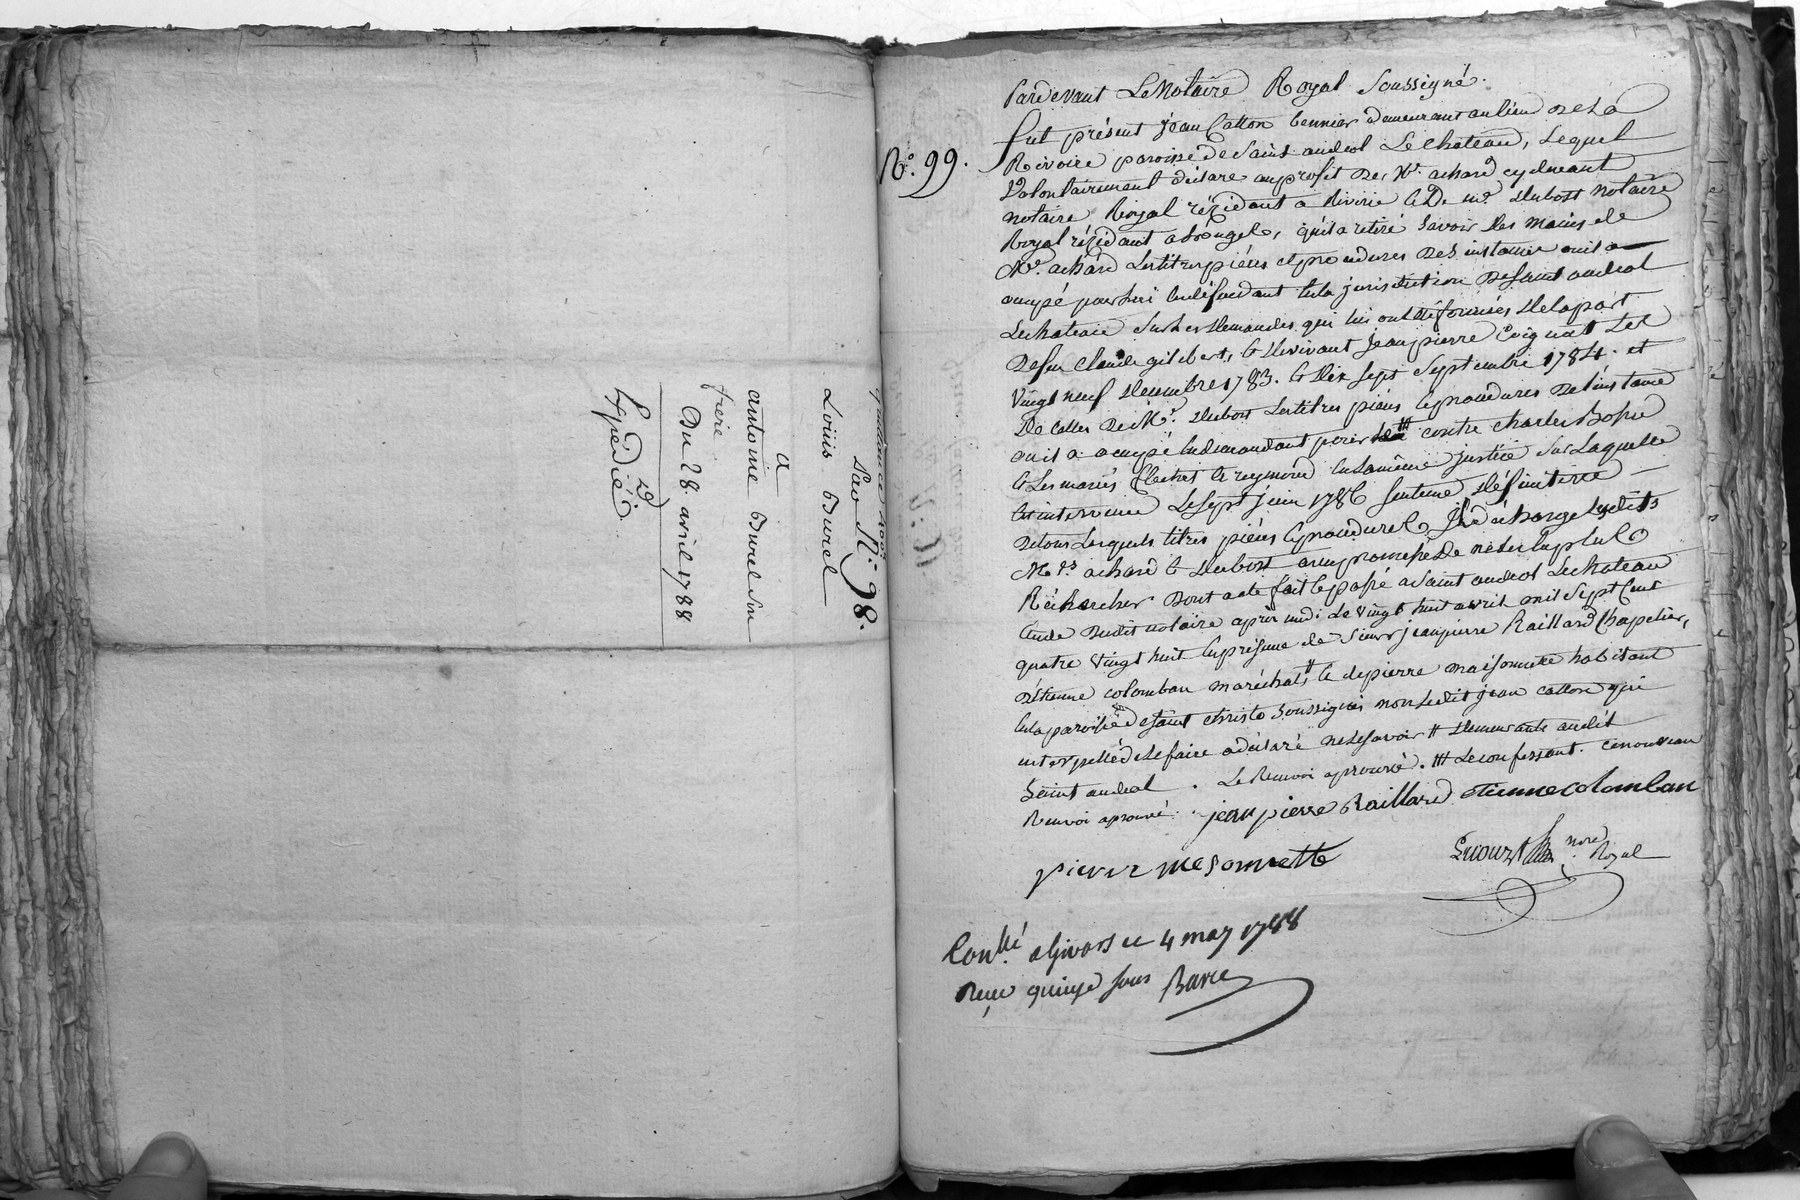 quittance
N.º 98.
Louis Burel
a
antoine Burel son
frere
Du 28. avril 1788
Expédié
N.º 99.
Pardevant Le Notaire Royal Soussigné.
fut présent jean Catton demeurant au lieu de La
Rivoire paroisse de saint andeol Le chateau, Lequel
Volontairement déclare au profit de Me. achard cydevant
notaire Royal rézidant a Riverie & De me. Dubost notaire
Royal rézidant a, qu'il a retiré savoir des mains de
Me. achard Les titres pièces et procedures des instances ou il a
occupé pour lui en défendant en la jurisdiction De saint andeol
Lechateau sur Les demandes qui lui ont été formées de la part
De feu Claude gilibert, & du vivant jean pierre Coignat Les
vingt neuf decembre 1783. & dix sept Septembre 1784. et
De Celles de Me. dubost Les titres pièces & procedures De l'instance
ou il a occupé en demandant pour contre charles
& Les mariés & reymond en la même justice Sur Laquelle
est intervenue Le sept juin 1786 sentence définitive
De tous Lesquels titres pièces & procedures il décharge Lesdits
Mes. achard & dubost avec promesse De ne les en plus
Rechercher Dont acte fait & passé a saint andeol Lechateau
étude dudit notaire après midi Le vingt huit avril mil sept Cent
quatre vingt huit en présence de sieur jean pierre Raillard Chapelier,
d'étienne colomban maréchal # & de pierre maisonnette habitant
en la paroisse de saint christo soussignés non Ledit jean catton qui
interpellé de le faire a déclaré ne le savoir # demeurants audit
Saint andeol. Le Renvoi aprouvé. ### Le confessant. ce nouveau
Renvoi aprouvé. jean pierre Raillard étienne colomban
pierre mesonnette
nore
Royal
Conllé a Givors ce 4 may 1788
Reçu quinze sous